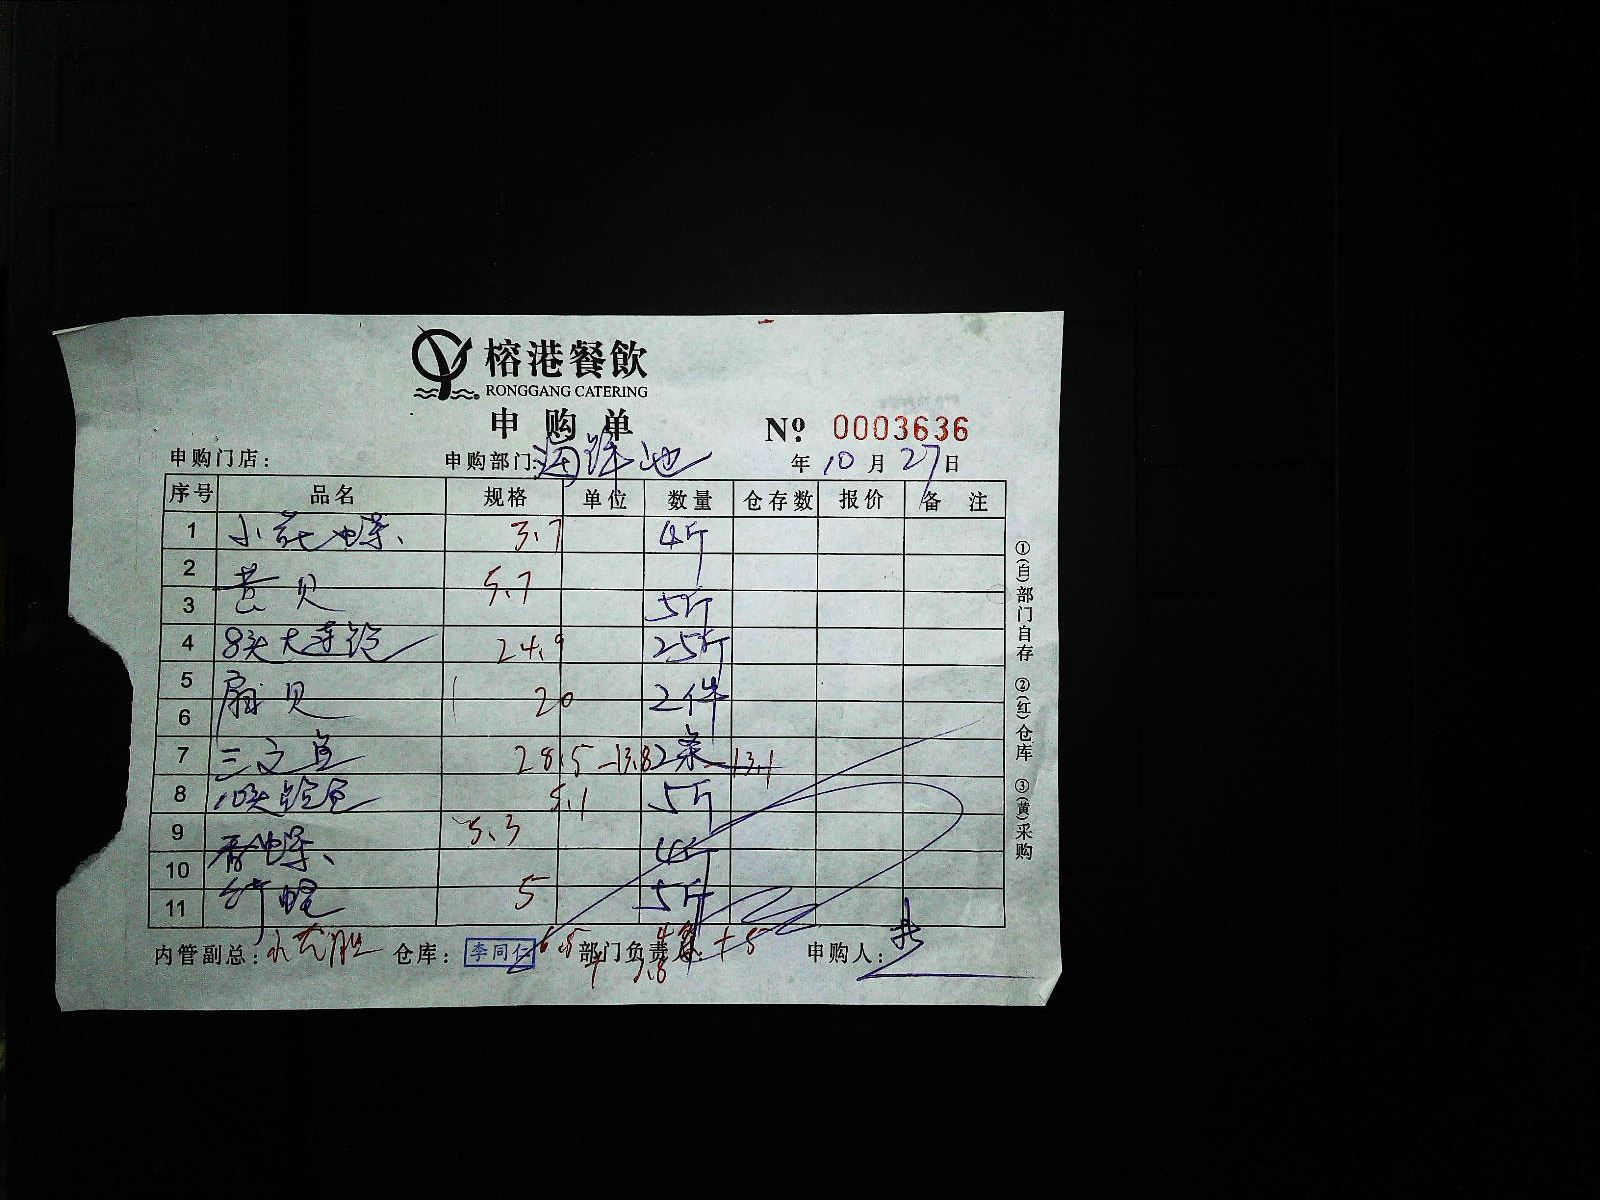 榕港餐飲
RONGGANG CATERING
申购单
№ 0003636
申购门店: 申购部门: 海鲜池 年 10 月 27 日
序号 品名 规格 单位 数量 仓存数 报价 备注
1 小花螺 3.7 4斤
2 5.7
3 贝 5斤
4 8头大连鲍 24.9 25斤
5 扇贝 20 2件
6
7 三文鱼 28.5 -13.8 2条 -13.1
8 10头鲍鱼 5.1 5斤
9 5.3
10 香螺 4斤
11 竹蛏 5 5斤
内管副总: 仓库: 李同仁 6.5 部门负责人: +5 申购人:
7.8
①(白)部门自存 ②(红)仓库 ③(黄)采购